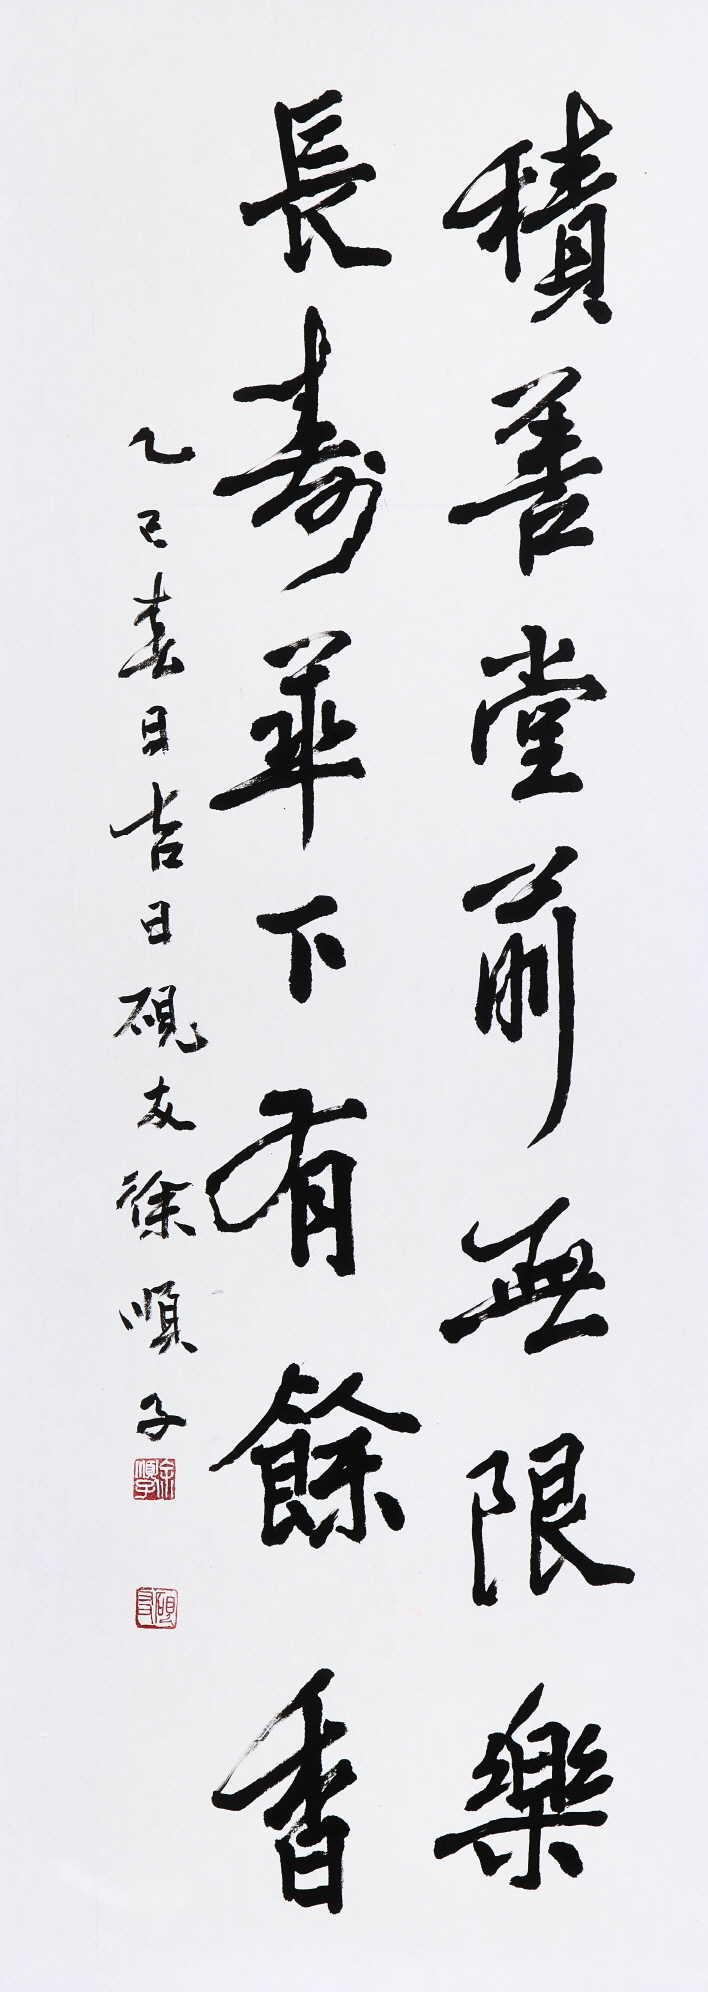 積善堂前無限樂
長壽華下有餘香
乙巳春日吉日硯友徐順子
徐順子
硯友